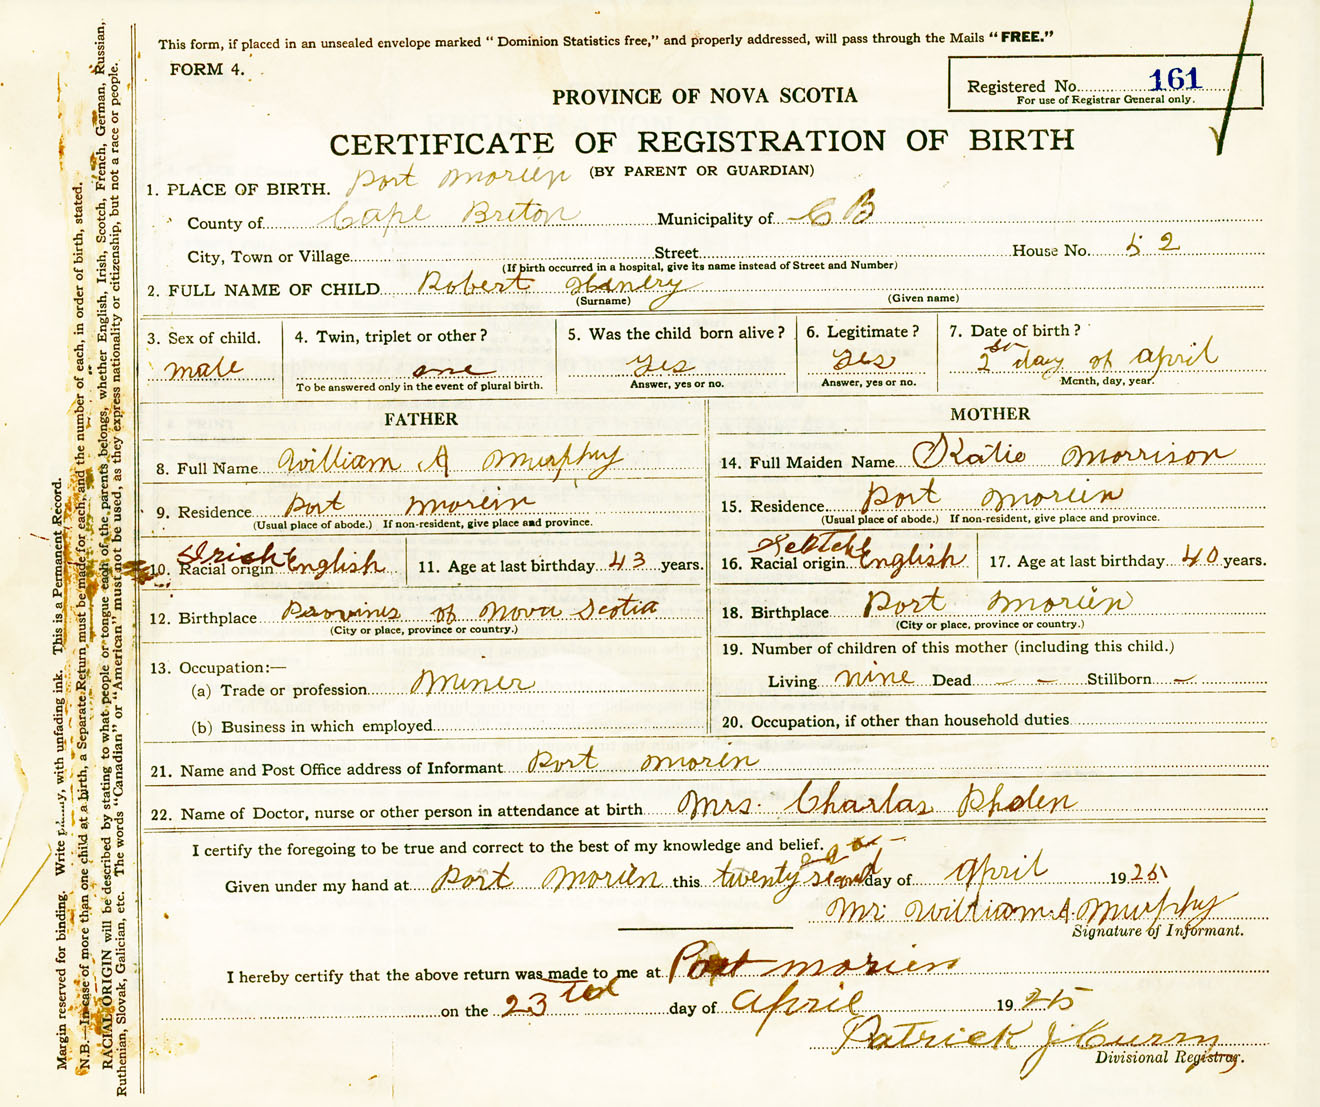 This form, if placed in an unsealed envelope marked “ Dominion Statistics free,” and properly addressed, will pass through the Mails “FREE.”
FORM 4.
Registered No. 161
For use of Registrar General only.
PROVINCE OF NOVA SCOTIA
CERTIFICATE OF REGISTRATION OF BIRTH
(BY PARENT OR GUARDIAN)
1. PLACE OF BIRTH. Port Morien
County of Cape Breton Municipality of C B
City, Town or Village Street House No. 52
(If birth occurred in a hospital, give its name instead of Street and Number)
2. FULL NAME OF CHILD Robert Henery
(Surname) (Given name)
3. Sex of child. 4. Twin, triplet or other? 5. Was the child born alive? 6. Legitimate? 7. Date of birth?
male one yes yes 2 st day of april
To be answered only in the event of plural birth. Answer, yes or no. Answer, yes or no. Month, day, year.
FATHER MOTHER
8. Full Name William A Murphy 14. Full Maiden Name Katie Morrison
9. Residence Port Morein 15. Residence Port Morein
(Usual place of abode.) If non-resident, give place and province. (Usual place of abode.) If non-resident, give place and province.
10. Racial origin Irish English 11. Age at last birthday 43 years. 16. Racial origin English 17. Age at last birthday 40 years.
12. Birthplace Provines of Nova Scotia 18. Birthplace Port Morien
(City or place, province or country.) (City or place, province or country.)
13. Occupation:— 19. Number of children of this mother (including this child.)
(a) Trade or profession Miner Living nine Dead – – Stillborn –
(b) Business in which employed 20. Occupation, if other than household duties
21. Name and Post Office address of Informant Port Morin
22. Name of Doctor, nurse or other person in attendance at birth Mrs. Charlas Phden
I certify the foregoing to be true and correct to the best of my knowledge and belief.
Given under my hand at Port Morien this twenty second day of april 1925
Mr William A. Murphy
Signature of Informant.
I hereby certify that the above return was made to me at Port Morien
on the 23 day of april 1925
Patrick J. Curry
Divisional Registrar.
Margin reserved for binding. Write plainly, with unfading ink. This is a Permanent Record.
N.B.—In case of more than one child at a birth, a Separate Return must be made for each, and the number of each, in order of birth, stated.
RACIAL ORIGIN will be described by stating to what people or tongue each of the parents belongs, whether English, Irish, Scotch, French, German, Russian,
Ruthenian, Slovak, Galician, etc. The words “Canadian” or “American” must not be used, as they express nationality or citizenship, but not a race or people.